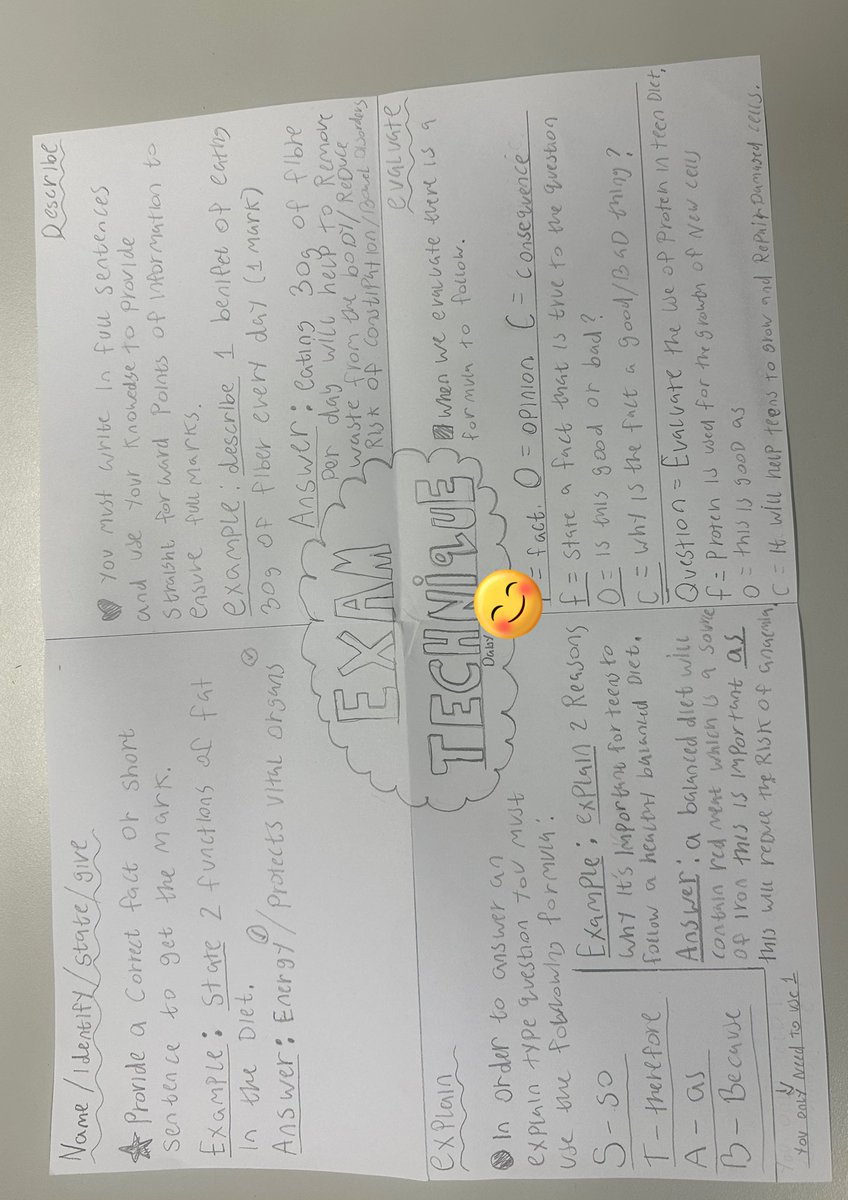 Name/Identify/state/give
Provide a correct fact or short
sentence to get the mark.
Example: State 2 functions of fat
In the Diet.
Answer: Energy/protects vital organs
Describe
You must write in full sentences
and use your knowledge to provide
straight forward points of information to
ensure full marks.
example: describe 1 benifet of eating
30g of fiber every day (1 mark)
Answer: eating 30g of fibre
per day will help to Remove
waste from the body/Reduce
Risk of constipation/Bowel Disorders
EXAM
TECHNIQUE
Daby
explain
In order to answer an
explain type question you must
use the following formula:
S - so
T - therefore
A - as
B - Because
You only need to use 1
Example: explain 2 Reasons
why it's important for teens to
follow a healthy balanced Diet.
Answer: a balanced diet will
contain red meat which is a source
of iron this is important as
this will reduce the Risk of anaemia
evaluate
When we evaluate there is a
formula to follow.
= fact. O = opinion C = consequence
f = state a fact that is true to the question
O = is this good or bad?
C = why is the fact a good/BAD thing?
Question = Evaluate the use of Protein in teen Diet.
f = Protein is used for the growth of New cells
O = this is good as
C = It will help teens to grow and Repair Damaged cells.